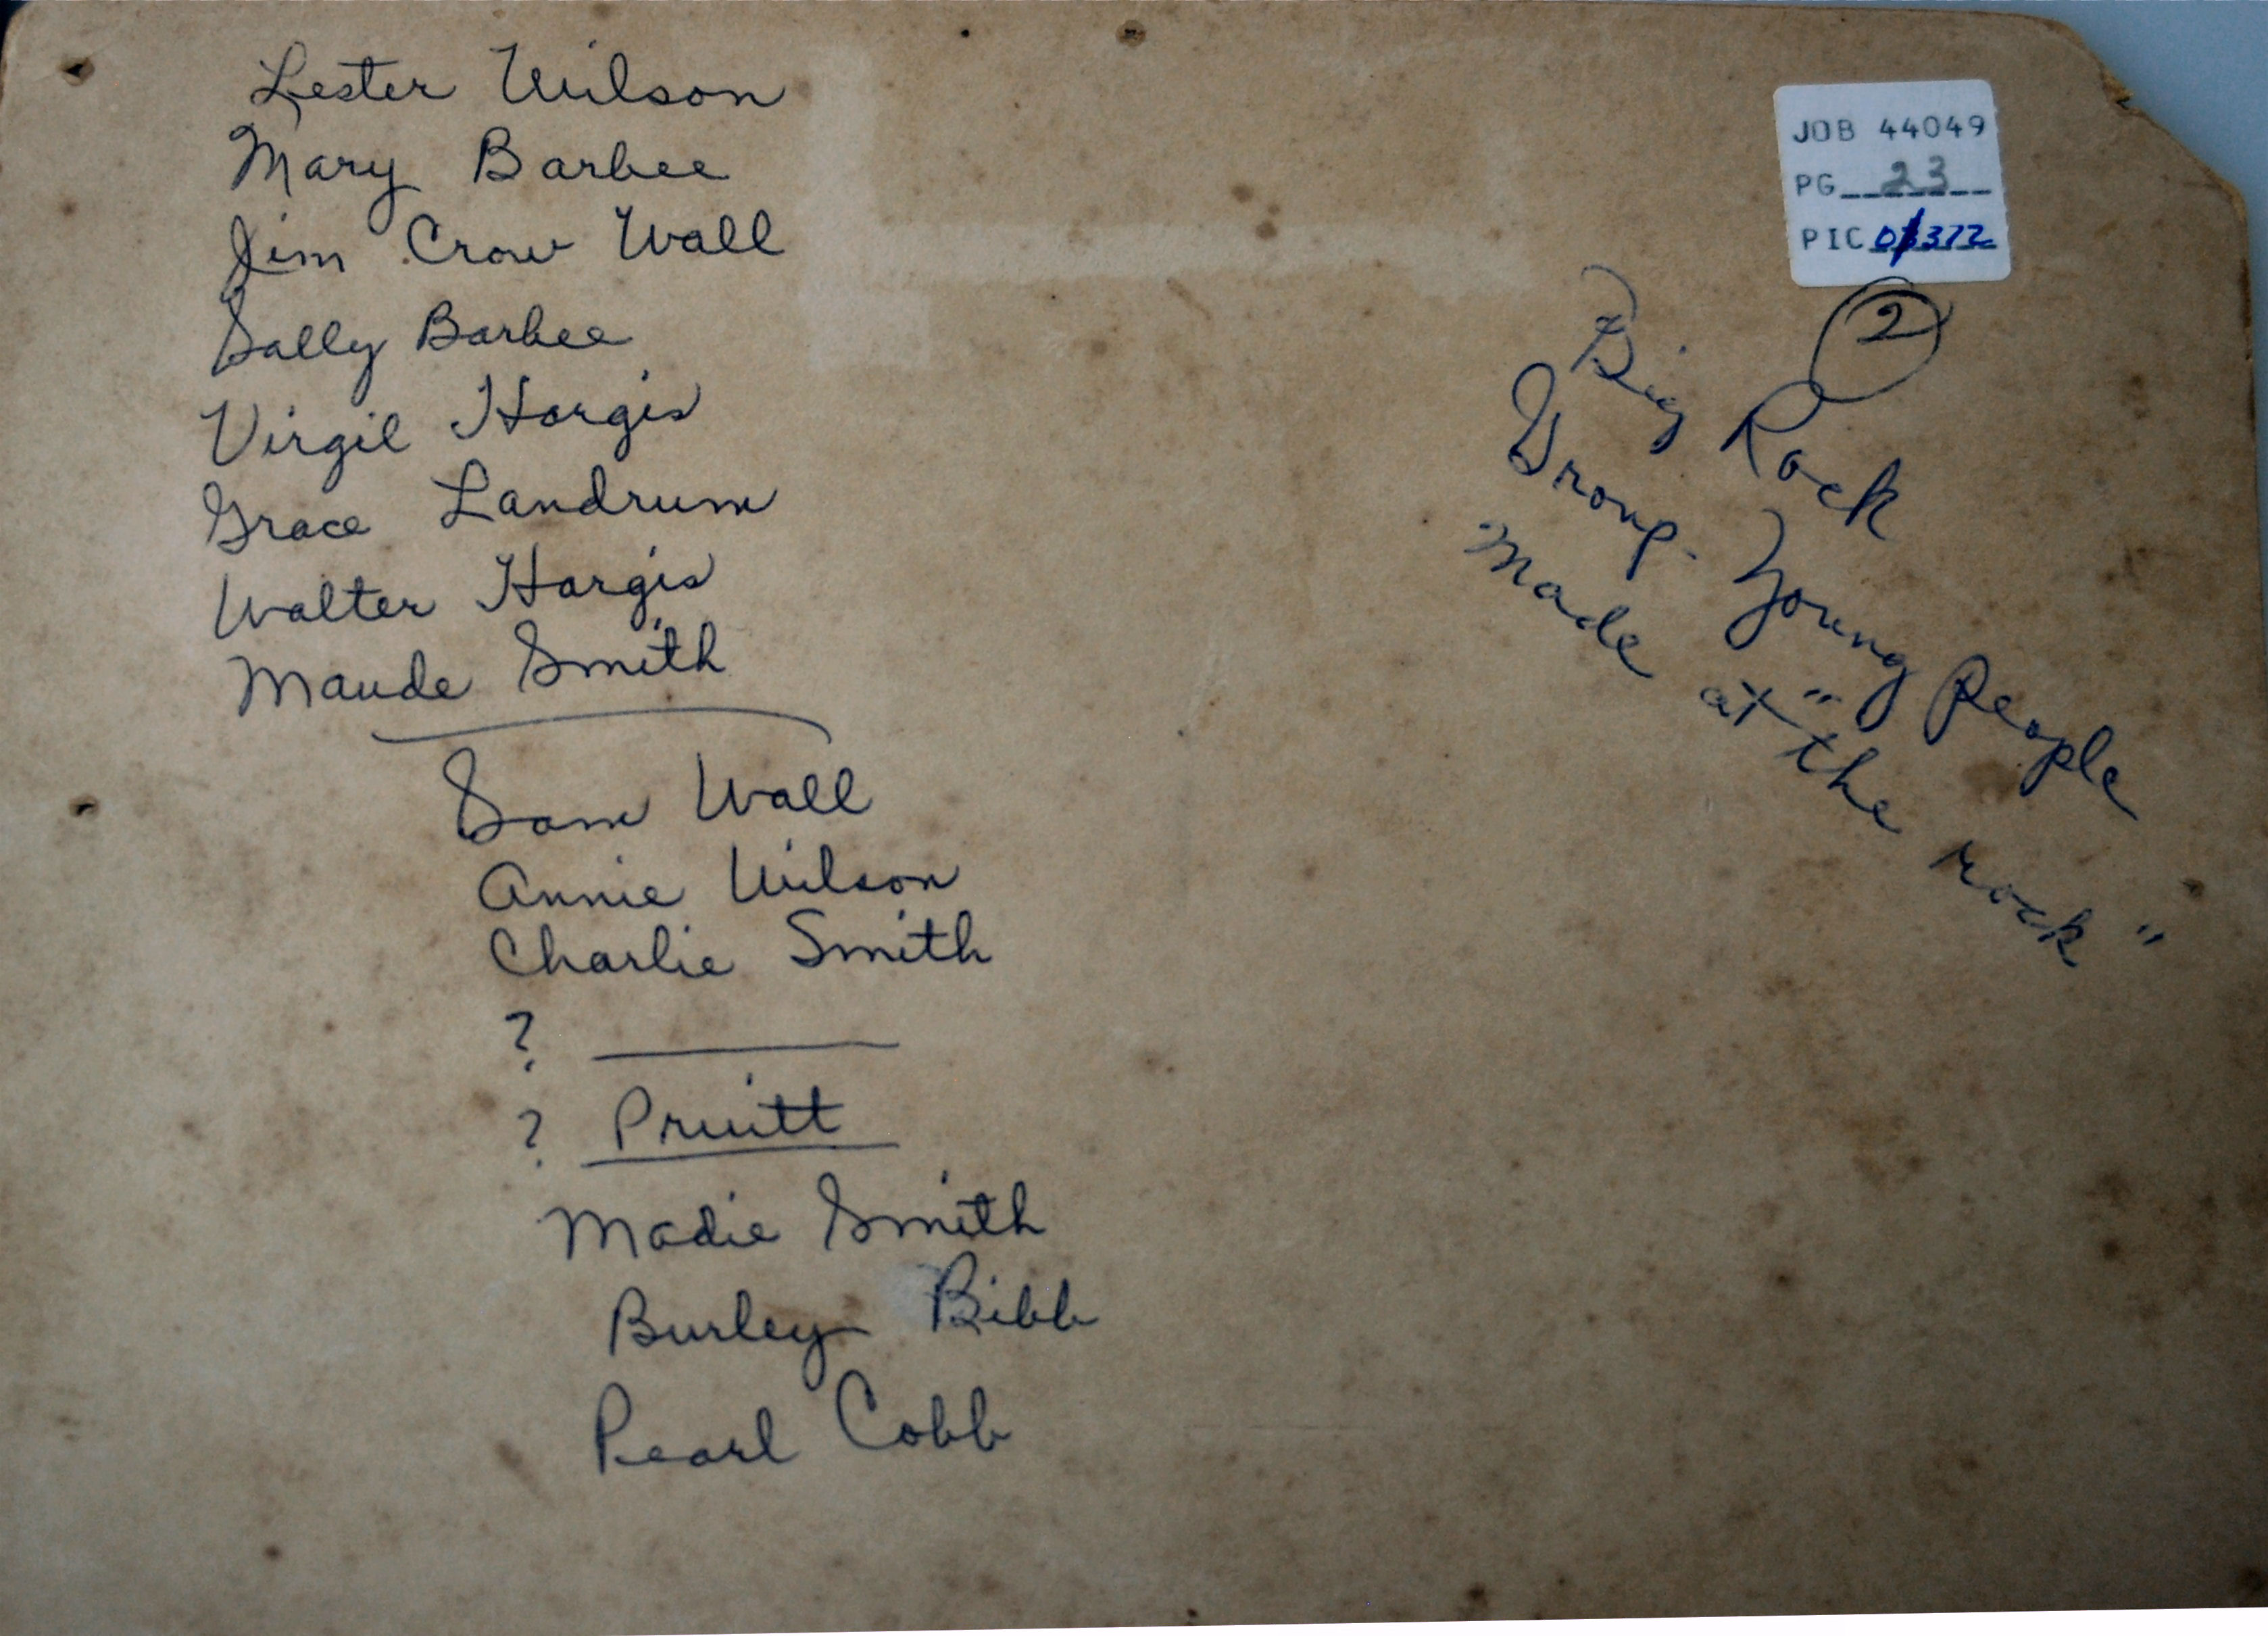 Lester Wilson
Mary Barbee
Jim Crow Wall
Sally Barbee
Virgil Hargis
Grace Landrum
Walter Hargis
Maude Smith
Sam Wall
Annie Wilson
Charlie Smith
?
? Pruitt
Madie Smith
Burley Bibb
Pearl Cobb
JOB 44049
PG 23
PIC
2
Big Rock
Group. Young People
Made at "the rock"